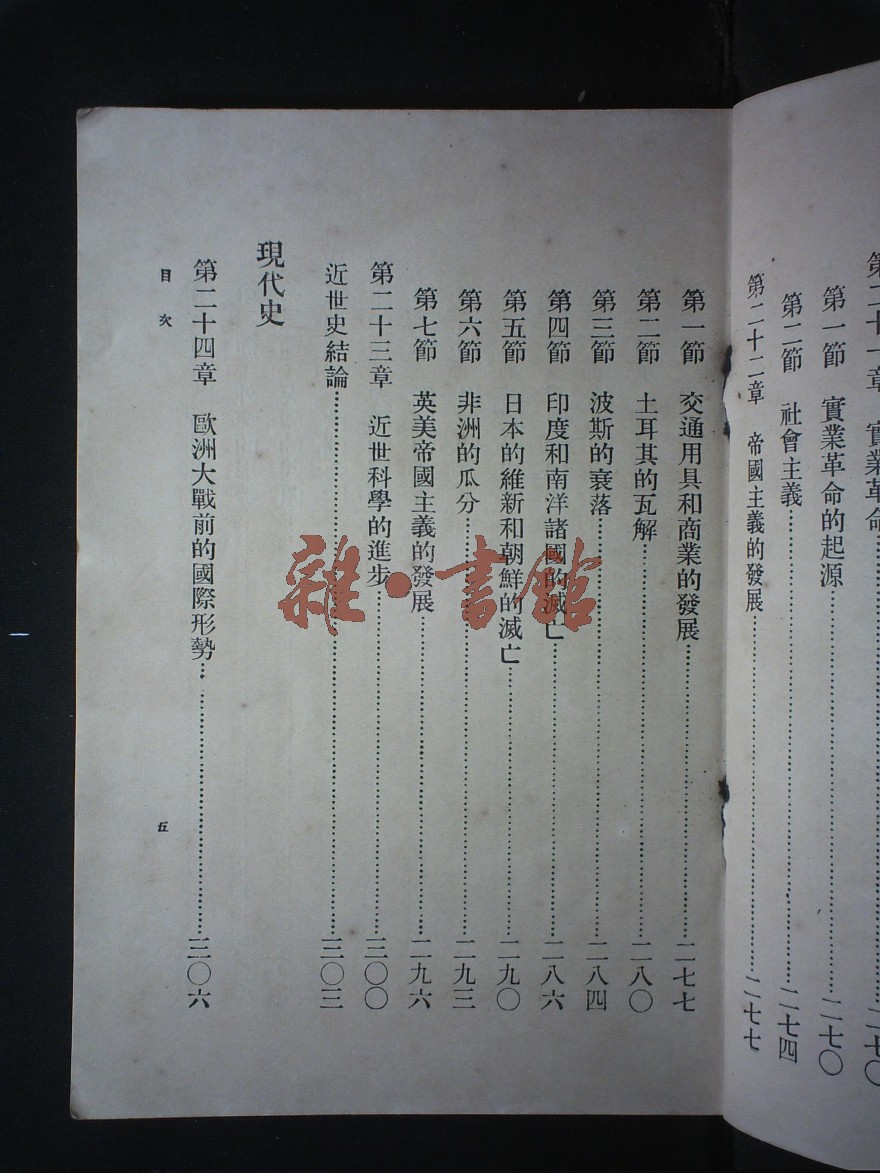 第二十一章 實業革命……二七〇
第一節 實業革命的起源……二七〇
第二節 社會主義……二七四
第二十二章 帝國主義的發展……二七七
第一節 交通用具和商業的發展……二七七
第二節 土耳其的瓦解……二八〇
第三節 波斯的衰落……二八四
第四節 印度和南洋諸國的滅亡……二八六
第五節 日本的維新和朝鮮的滅亡……二九〇
第六節 非洲的瓜分……二九三
第七節 英美帝國主義的發展……二九六
第二十三章 近世科學的進步……三〇〇
近世史結論……三〇三
現代史
第二十四章 歐洲大戰前的國際形勢……三〇六
目次
五
雜·書館